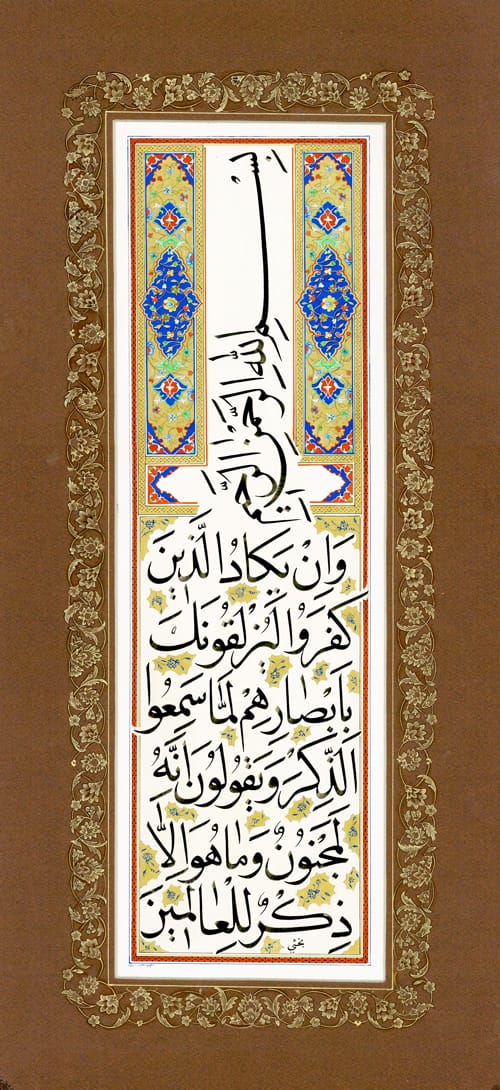 بِسْمِ اللّٰهِ الرَّحْمٰنِ الرَّحیمِ
وَاِنْ یَكادُ الَّذینَ
كَفَروُا لَیُزْلِقُونَكَ
بِاَبْصارِهِمْ لَمّا سَمِعُوا
الذِّكْرَ وَ یَقُولُونَ اِنَّهُ
لَمَجْنُونٌ وَ ما هُوَ اِلّا
ذِكْرٌ لِلْعالَمینَ